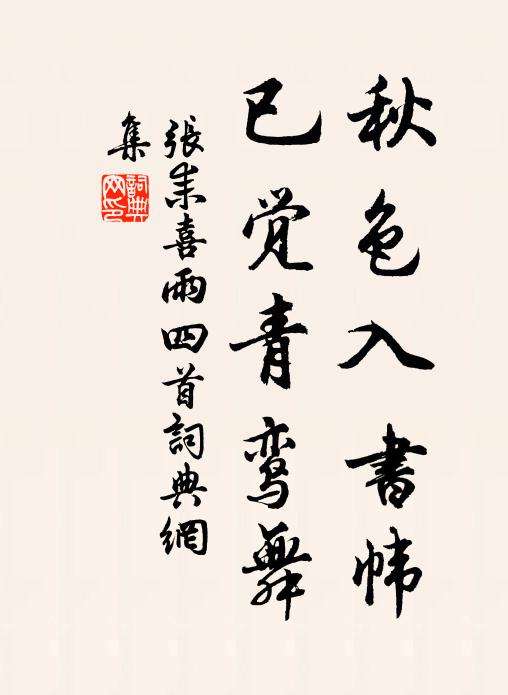 秋色入書帏
已觉青鸾舞
張耒喜雨四首詞典網
集
詞典
网印